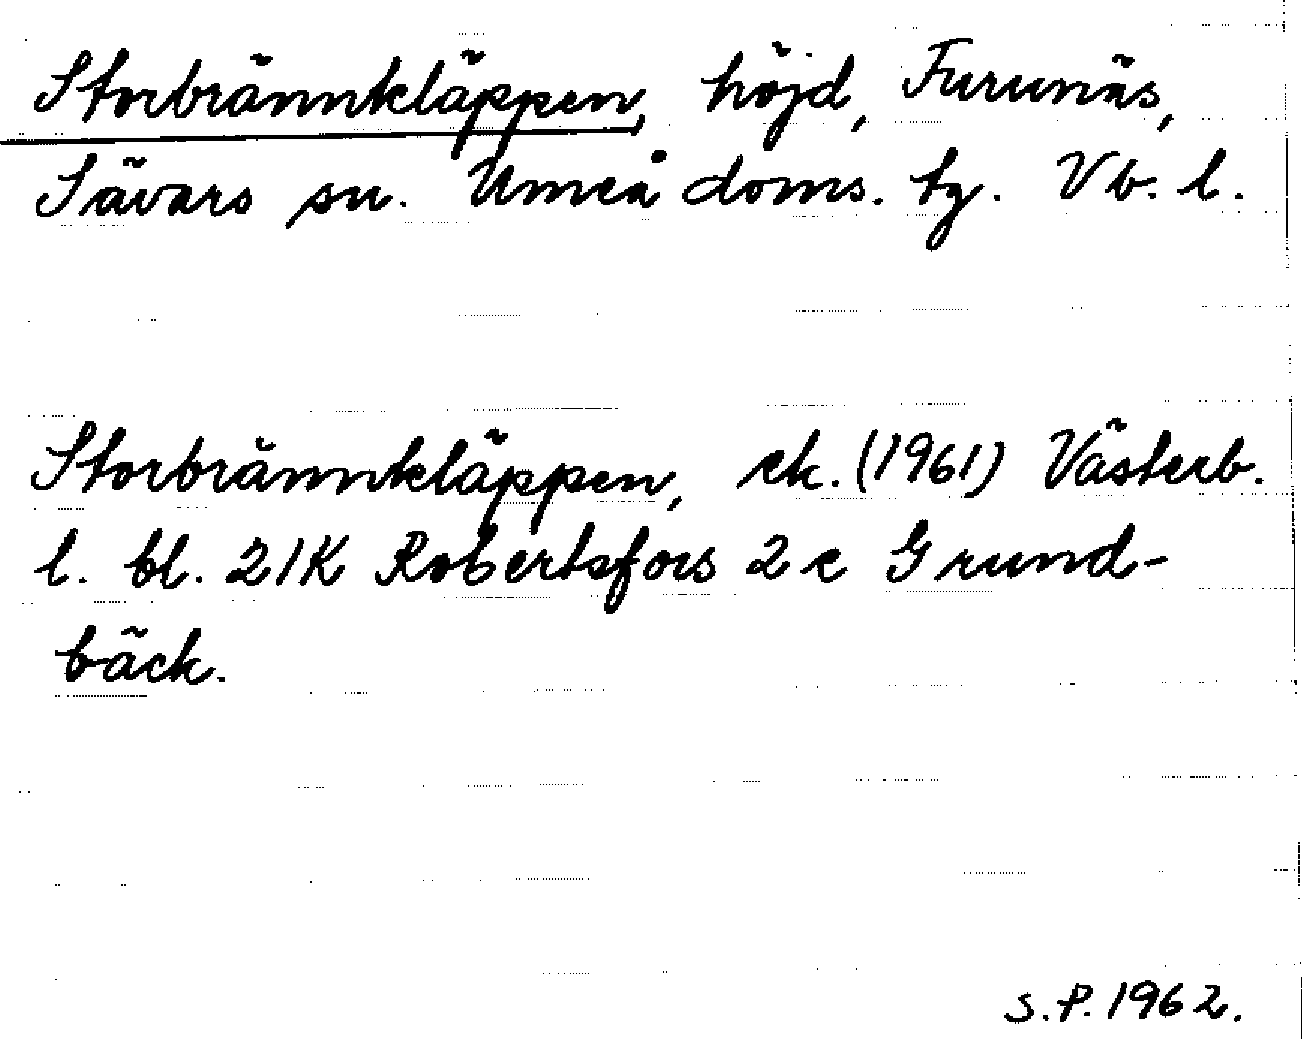 Storbrännkläppen, höjd, Furunäs,
Sävars sn. Umeå doms. tg. Vb. l.
Storbrännkläppen, ek. (1961) Västerb.
l. bl. 21K Robertsfors 2 c Grund-
bäck.
S.P. 1962.